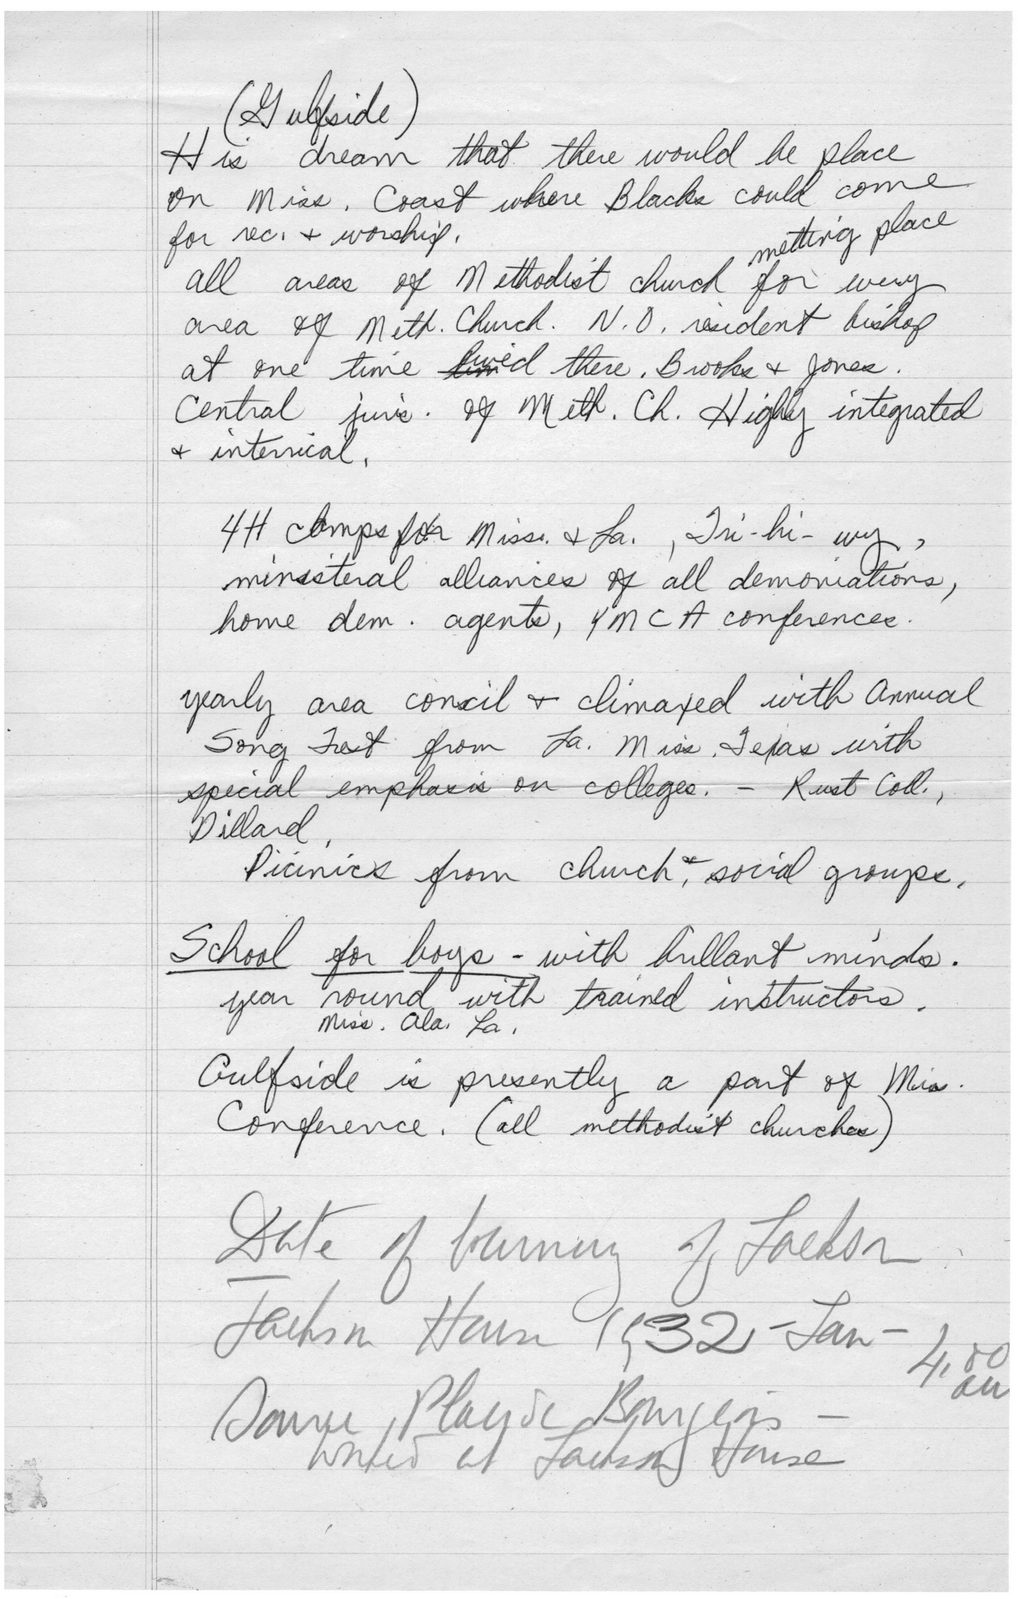 (Gulfside)
His dream that there would be place
on Miss. Coast where Blacks could come
for rec. + worship.
metting place
all areas of Methodist church for every
area of Meth. Church. N.O. resident bishop
at one time lived there. Brooks + Jones.
Central juris. of Meth. Ch. Highly integrated
+ interrical.
4H camps for Miss. & La., Tri-hi-wy,
ministeral alliances of all demoniations,
home dem. agents, YMCA conferences.
yearly area concil + climaxed with Annual
Song Fest from La. Miss. Texas with
special emphasis on colleges. - Rust Coll.,
Dillard.
Picinics from church + social groups.
School for boys - with brillant minds.
year round with trained instructors.
Miss. Ala. La.
Gulfside is presently a part of Miss.
Conference. (all methodist churches)
Date of burning of Jackson
Jackson House 1932 - Jan -
4.00
am
Source, Bourgeois -
worked at Jackson House